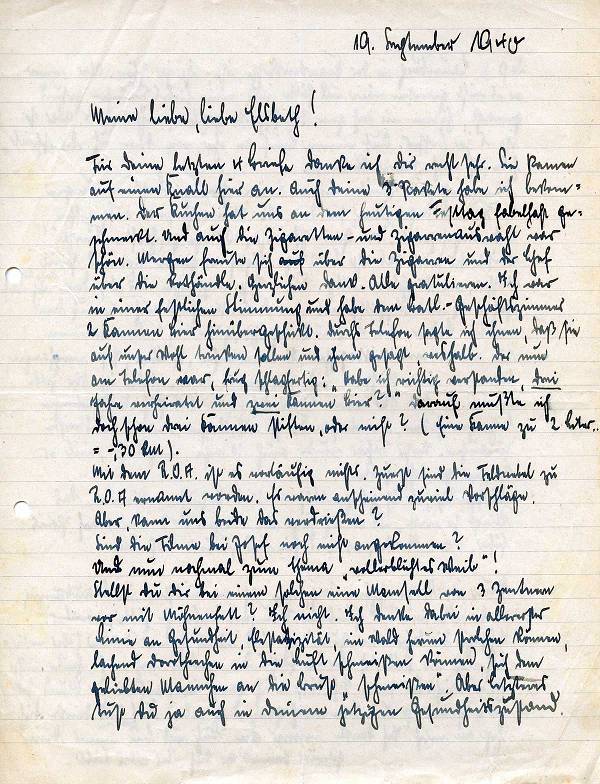 19. September 1940
Meine liebe, liebe Elsbeth!
Für deine letzten 4 Briefe danke ich dir recht sehr. Sie kamen
auf einen Knall hier an. Auch deine 3 Pakete habe ich bekom=
men. Der Kuchen hat uns an dem heutigen Festtag fabelhaft ge=
schmeckt. Und auch die Zigaretten- und Zigarrenauswahl war
schön. Mergen freute sich auch über die Zigarren und der Chef
über die Rothändle. Herzlichen Dank. Alle gratulieren. Ich war
in einer festlichen Stimmung und habe dem Batl.-Geschäftszimmer
2 Kannen Bier hinübergeschickt. Durchs Telefon sagte ich ihnen, daß sie
auf unser Wohl trinken sollen und ihnen gesagt weshalb. Der nun
am Telefon war, frug schlagfertig: "Habe ich richtig verstanden, drei
Jahre verheiratet und zwei Kannen Bier?" Darauf mußte ich
doch schon drei Kannen stiften, oder nicht? (Eine Kanne zu 2 Liter..
= -,30 RM).
Mit dem R.O.A. ist es vorläufig nichts. Zuerst sind die Feldwebel zu
R.O.A ernannt worden. Es waren anscheinend zuviel Vorschläge.
Aber, kann uns beide das verdrießen?
Sind die Filme bei Josef noch nicht angekommen?
Und nun nochmal zum Thema "vollerblühtes Weib"!
Stellst du dir bei einem solchen eine Mamsell von 3 Zentnern
vor mit Hühnerfett? Ich nicht. Ich denke dabei in allererster
Linie an Gesundheit, Elastizität, im Wald herum können,
lachend in die Luft schmeißen können, sich dem
geliebten Mannchen an die Brust "schmeißen". Aber letzteres
tust du ja auch in deinem jetzigen Gesundheitszustand.